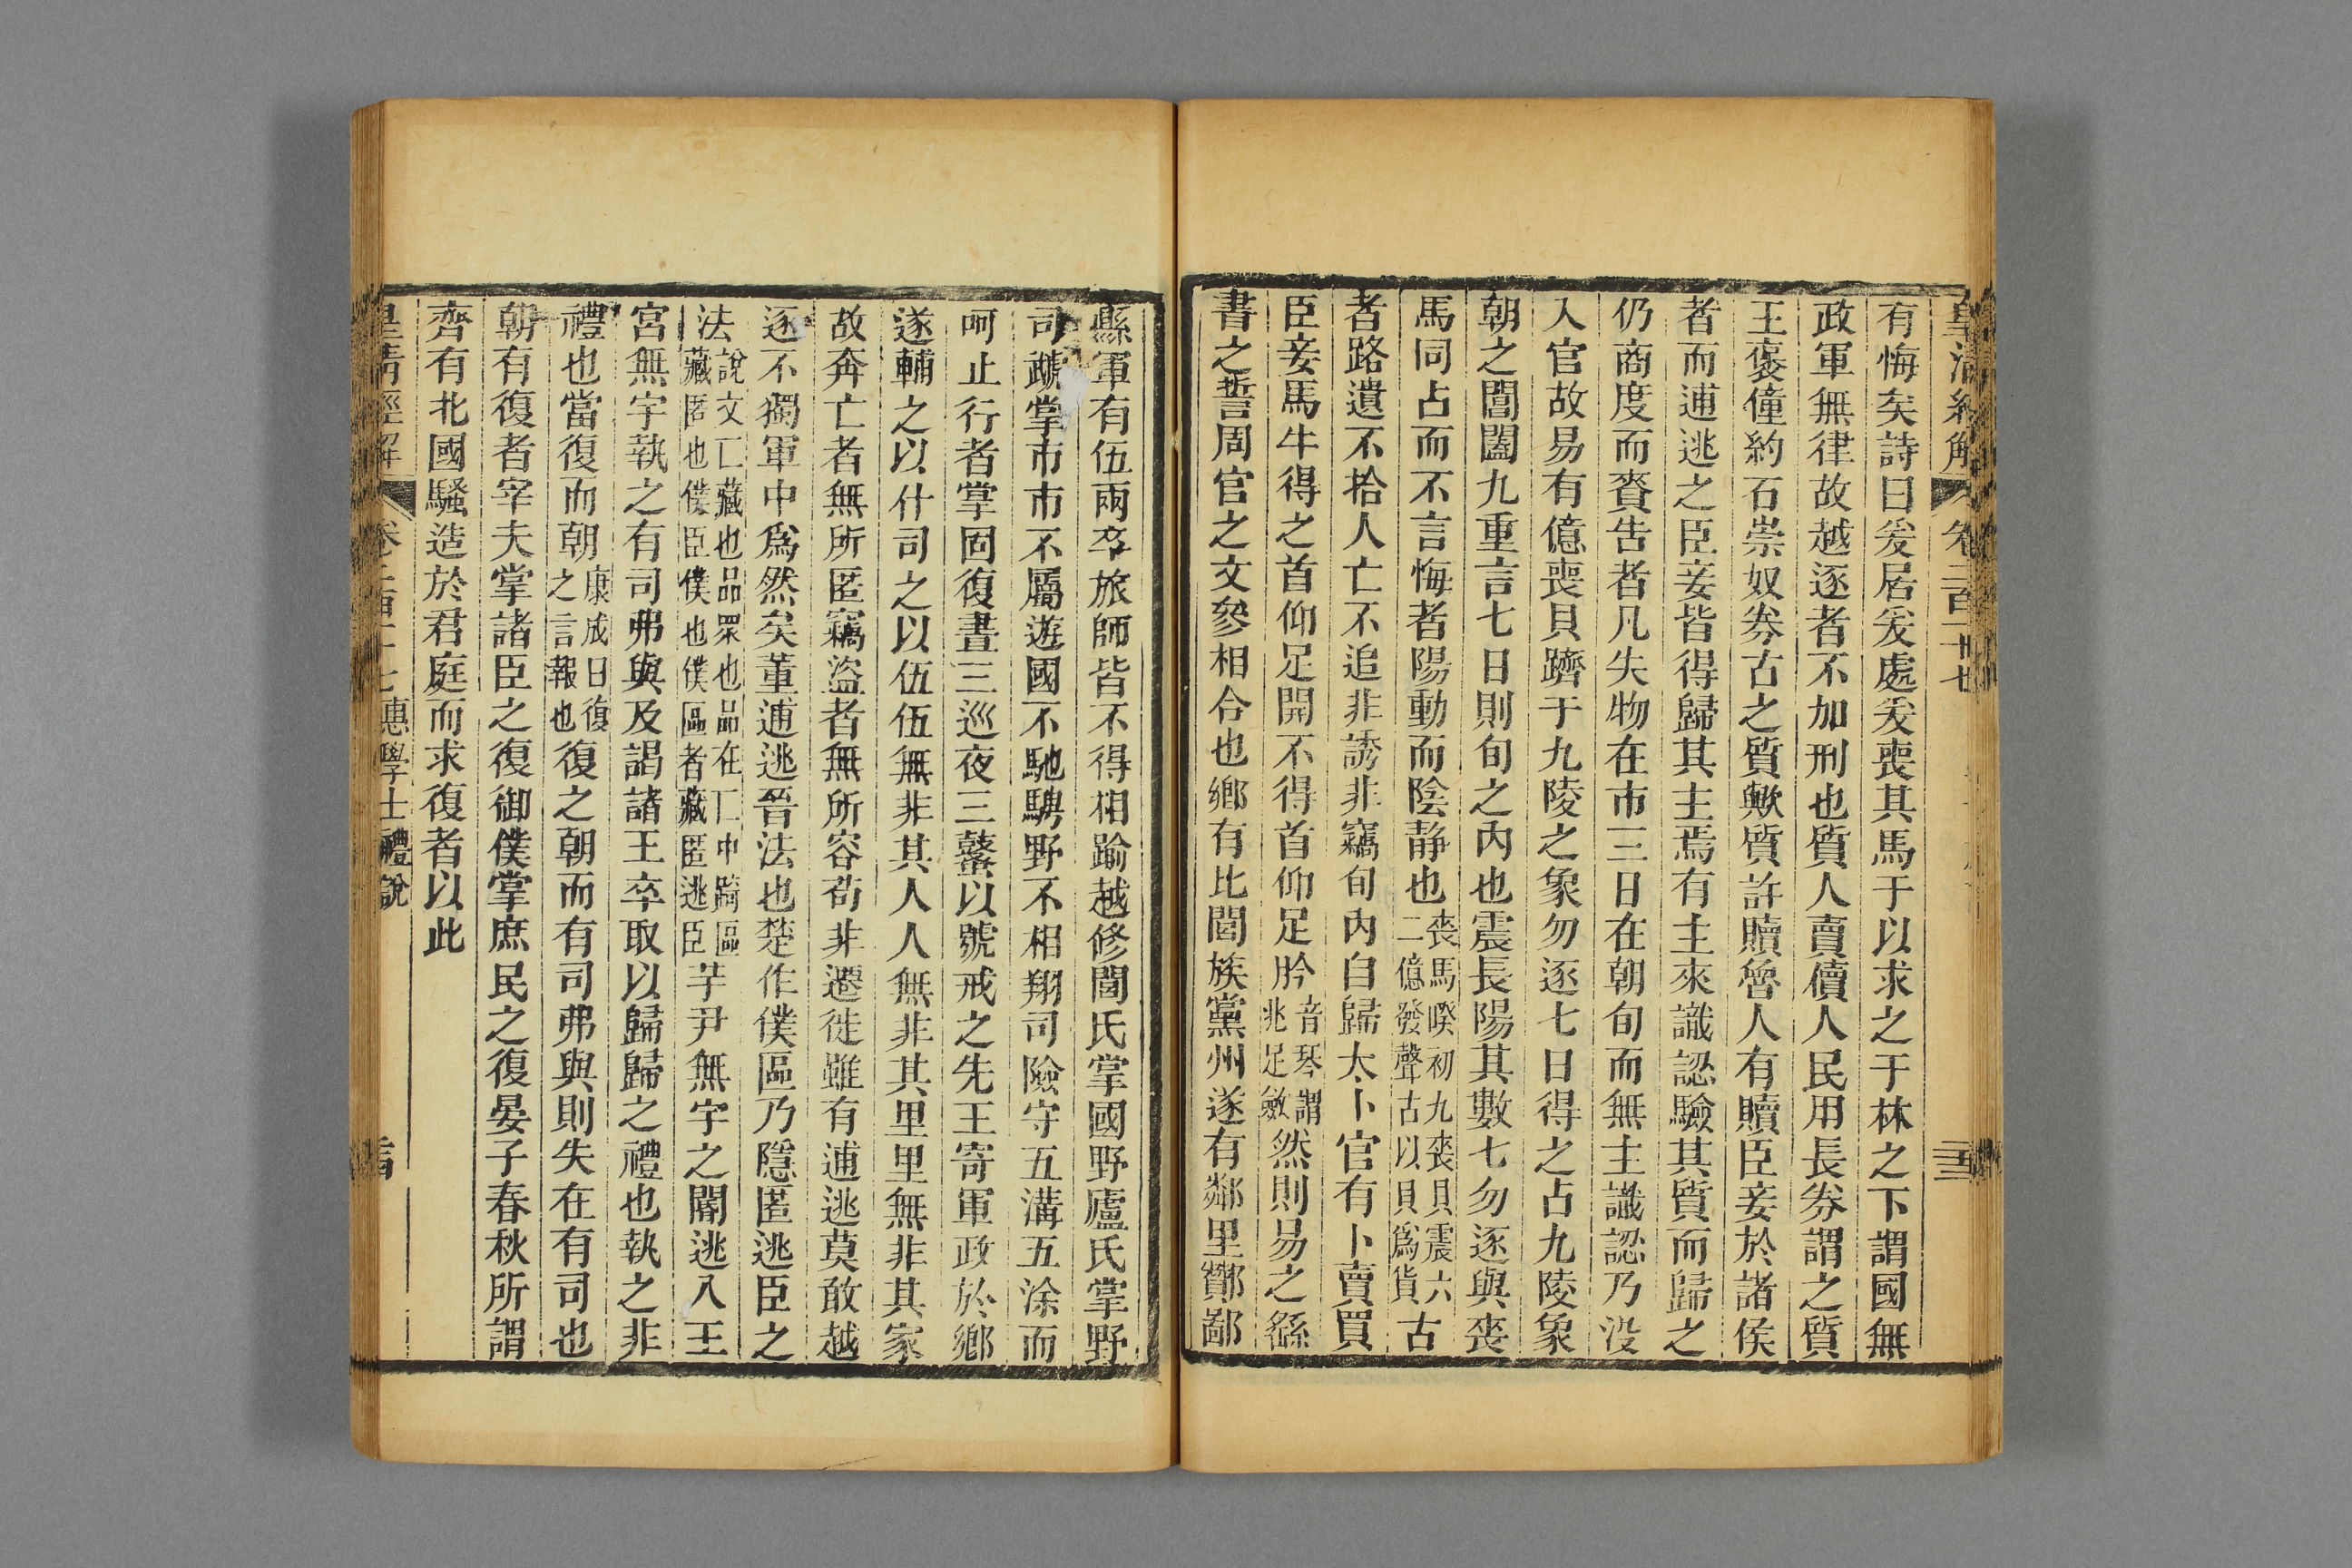 皇清經解 卷二百二十七
有悔矣詩曰爰居爰處爰喪其馬于以求之于林之下謂國無
政軍無律故越逐者不加刑也質人賣儥人民用長劵謂之質
王褒僮約石崇奴劵古之質歟質許贖魯人有贖臣妾於諸侯
者而逋逃之臣妾皆得歸其主焉有主來識認驗其質而歸之
仍商度而賚告者凡失物在市三日在朝旬而無主識認乃没
入官故易有億喪貝躋于九陵之象勿逐七日得之占九陵象
朝之閶闔九重言七日則旬之內也震長陽其數七勿逐與喪
馬同占而不言悔者陽動而陰靜也喪馬睽初九喪貝震六二億發聲古以貝爲貨古
者路遺不拾人亡不追非誘非竊旬內自歸太卜官有卜賣買
臣妾馬牛得之首仰足開不得首仰足肣音琴謂兆足斂然則易之繇
書之誓周官之文參相合也鄉有比閭族黨州遂有鄰里酇鄙
縣軍有伍兩卒旅師皆不得相踰越修閭氏掌國野廬氏掌野
司虣掌市市不屬遊國不馳騁野不相翔司險守五溝五涂而
呵止行者掌固復晝三巡夜三鼜以號戒之先王寄軍政於鄉
遂輔之以什司之以伍伍無非其人人無非其里里無非其家
故奔亡者無所匿竊盜者無所容苟非遷徙雖有逋逃莫敢越
逐不獨軍中爲然矣董逋逃晉法也楚作僕區乃隱匿逃臣之
法說文匸藏也品眾也品在匸中踦區藏匿也僕臣僕也僕區者藏匿逃臣芋尹無宇之閽逃入王
宮無宇執之有司弗與及謁諸王卒取以歸歸之禮也執之非
禮也當復而朝康成曰復之言報也復之朝而有司弗與則失在有司也
朝有復者宰夫掌諸臣之復御僕掌庶民之復晏子春秋所謂
齊有北國騷造於君庭而求復者以此
皇清經解 卷二百二十七惠學士禮說